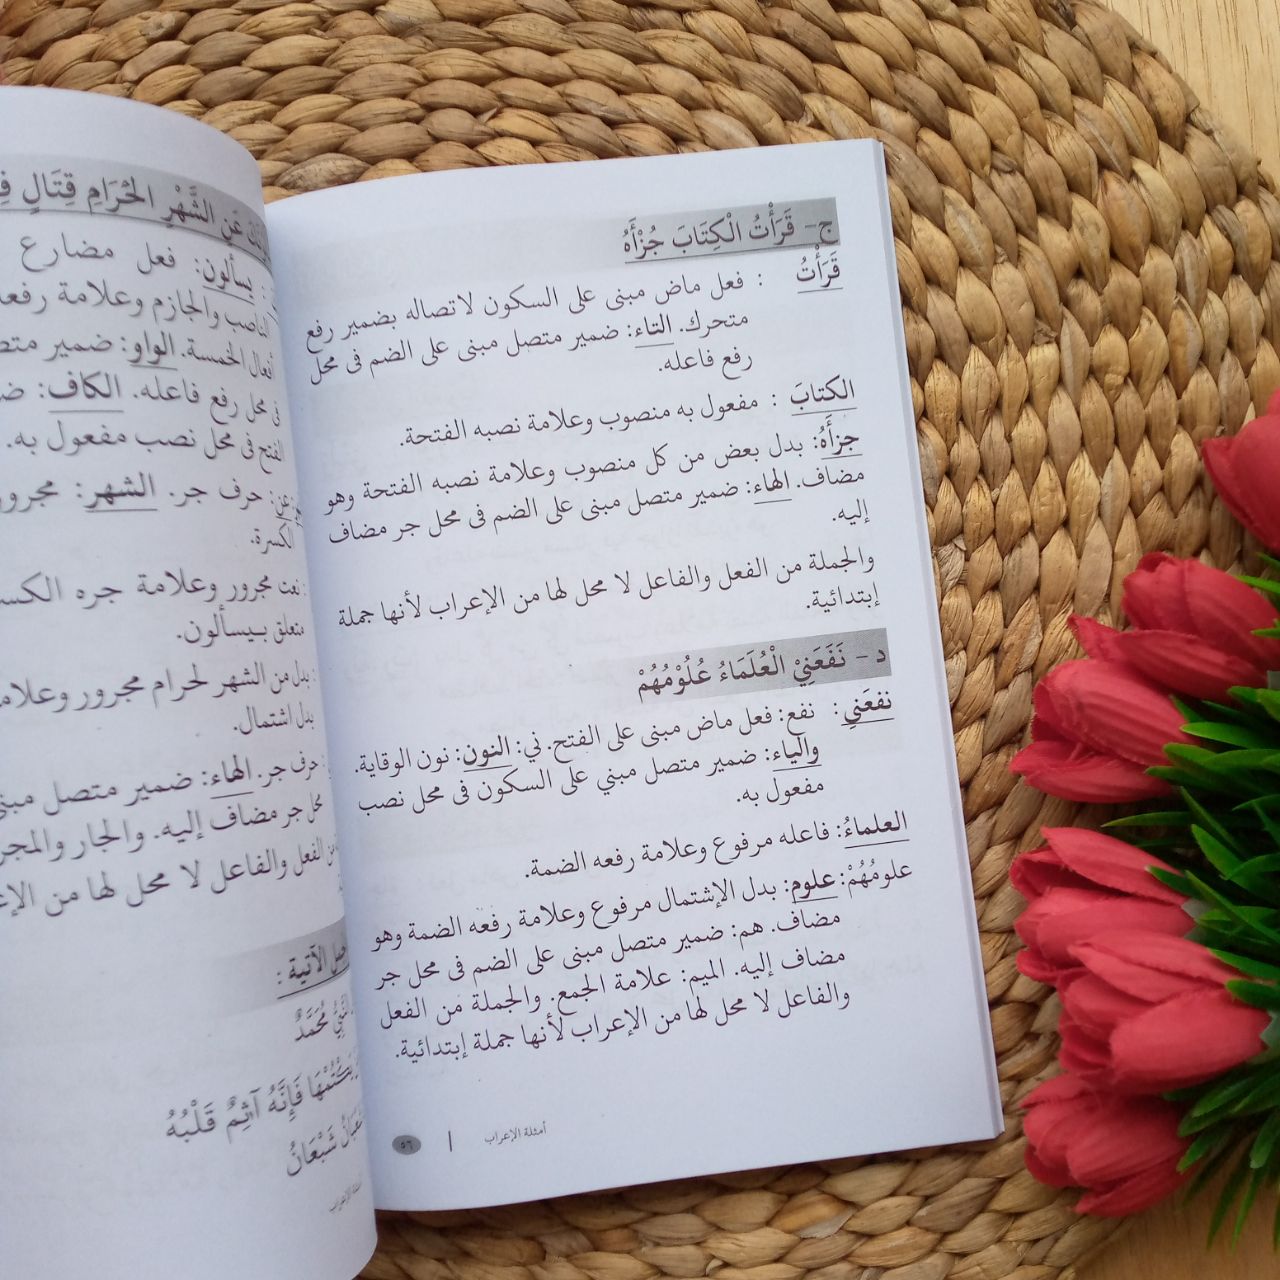 ج- قَرَأْتُ الْكِتَابَ جُزْأَهُ
قَرَأْتُ : فعل ماض مبنى على السكون لاتصاله بضمير رفع
متحرك. التاء: ضمير متصل مبنى على الضم فى محل
رفع فاعله.
الكتابَ : مفعول به منصوب وعلامة نصبه الفتحة.
جزأَهُ: بدل بعض من كل منصوب وعلامة نصبه الفتحة وهو
مضاف. الهاء: ضمير متصل مبنى على الضم فى محل جر مضاف
إليه.
والجملة من الفعل والفاعل لا محل لها من الإعراب لأنها جملة
إبتدائية.
د- نَفَعَنِيْ الْعُلَمَاءُ عُلُوْمُهُمْ
نفعَني: نفع: فعل ماض مبنى على الفتح. ني: النون: نون الوقاية.
والياء: ضمير متصل مبني على السكون فى محل نصب
مفعول به.
العلماءُ: فاعله مرفوع وعلامة رفعه الضمة.
علومُهُمْ: علوم: بدل الإشتمال مرفوع وعلامة رفعه الضمة وهو
مضاف. هم: ضمير متصل مبنى على الضم فى محل جر
مضاف إليه. الميم: علامة الجمع. والجملة من الفعل
والفاعل لا محل لها من الإعراب لأنها جملة إبتدائية.
أمثلة الإعراب | ٥٦
عَنِ الشَّهْرِ الْحَرَامِ قِتَالٍ
يسألون: فعل مضارع
الناصب والجازم وعلامة
أفعال الخمسة. الواو: ضمير
فى محل رفع فاعله. الكاف:
الفتح فى محل نصب مفعول به.
عن: حرف جر. الشهر:
الكسرة.
: نعت مجرور وعلامة جره
متعلق بـيسألون.
: بدل من الشهر لحرام مجرور
بدل اشتمال.
حرف جر. الهاء: ضمير متصل
محل جر مضاف إليه. والجار
الفعل والفاعل لا محل لها من
الآتية :
مُحَمَّدٌ
فَإِنَّهُ آثِمٌ قَلْبُهُ
شَبْعَانُ